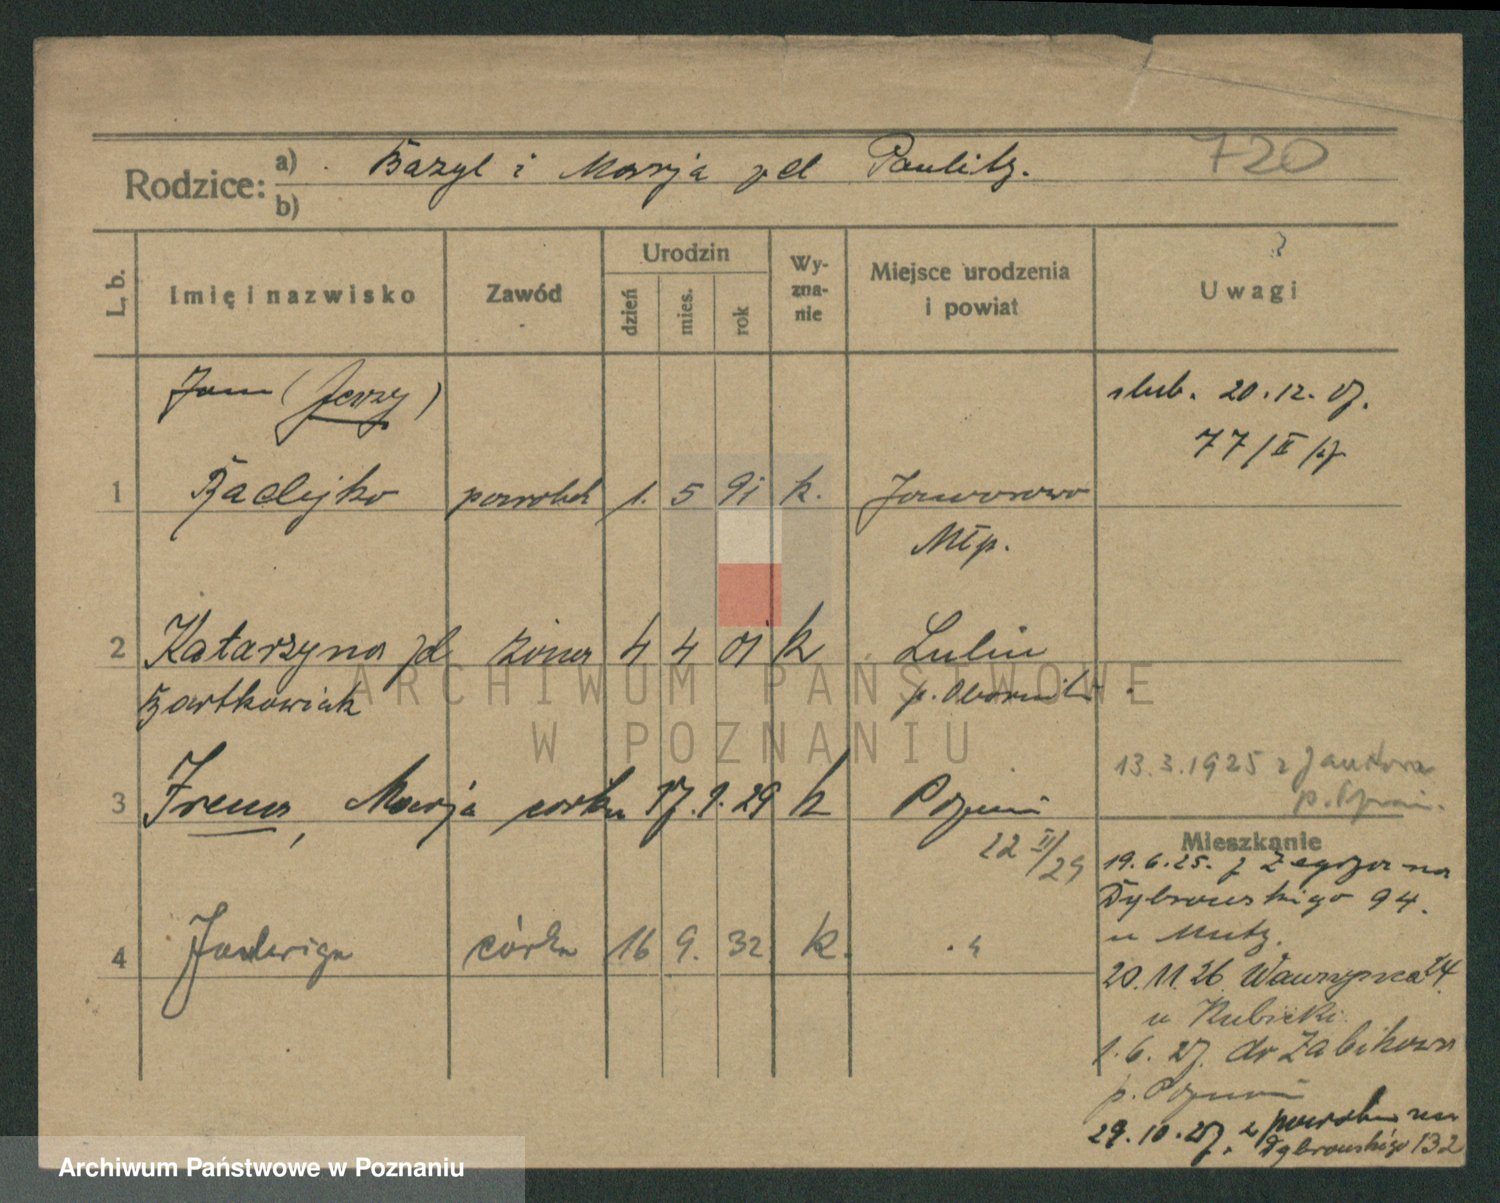 720
Rodzice: a) Bazyl i Marja zd Paulitz.
b)
L. b.
Imię i nazwisko
Zawód
Urodzin
dzień
mies.
rok
Wy-
zna-
nie
Miejsce urodzenia
i powiat
Uwagi
Jan (Jerzy)
ślub. 20.12.27.
77/II/27
1 Baclejko powroźnik 1. 5 91 k. Jaworowo
Młp.
2 Katarzyna zd żona 4 4 01 k Lulin
Bartkowiak p. Oborniki.
3 Irena, Marja córka 17. 1. 29 k Poznań
22 II/29
13.3.1925 z Janikowa
Mieszkanie
19.6.25. z Zegrza na
Dąbrowskiego 94.
u Mutz.
4 Jadwiga córka 16 9. 32 k. "
20.11.26 Wawrzyńca 24
u Kubicki
1.6.27. do Żabikowa
p. Poznań
29.10.27. z powrotem na
Dąbrowskiego 132
ARCHIWUM PAŃSTWOWE
W POZNANIU
Archiwum Państwowe w Poznaniu